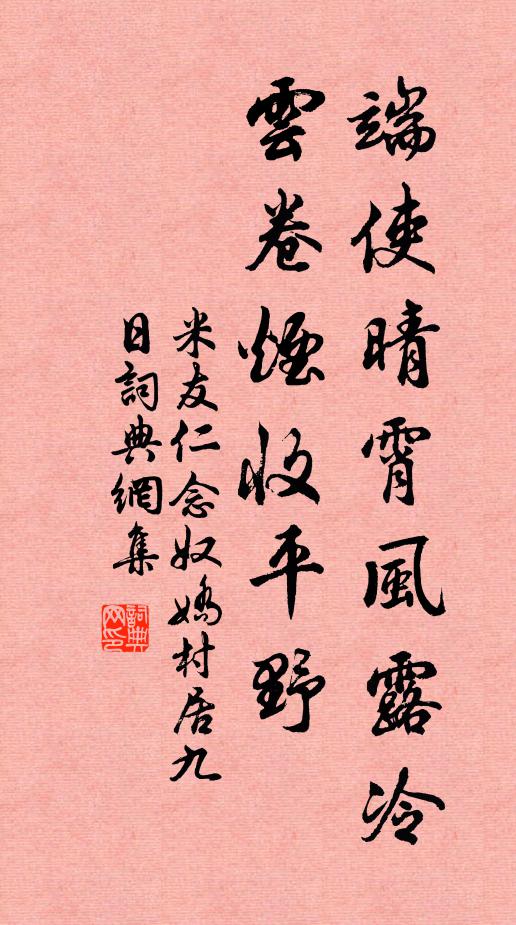 端使晴霄風露冷
雲卷煙收平野
米友仁念奴嬌村居九
日詞典網集
詞典网印